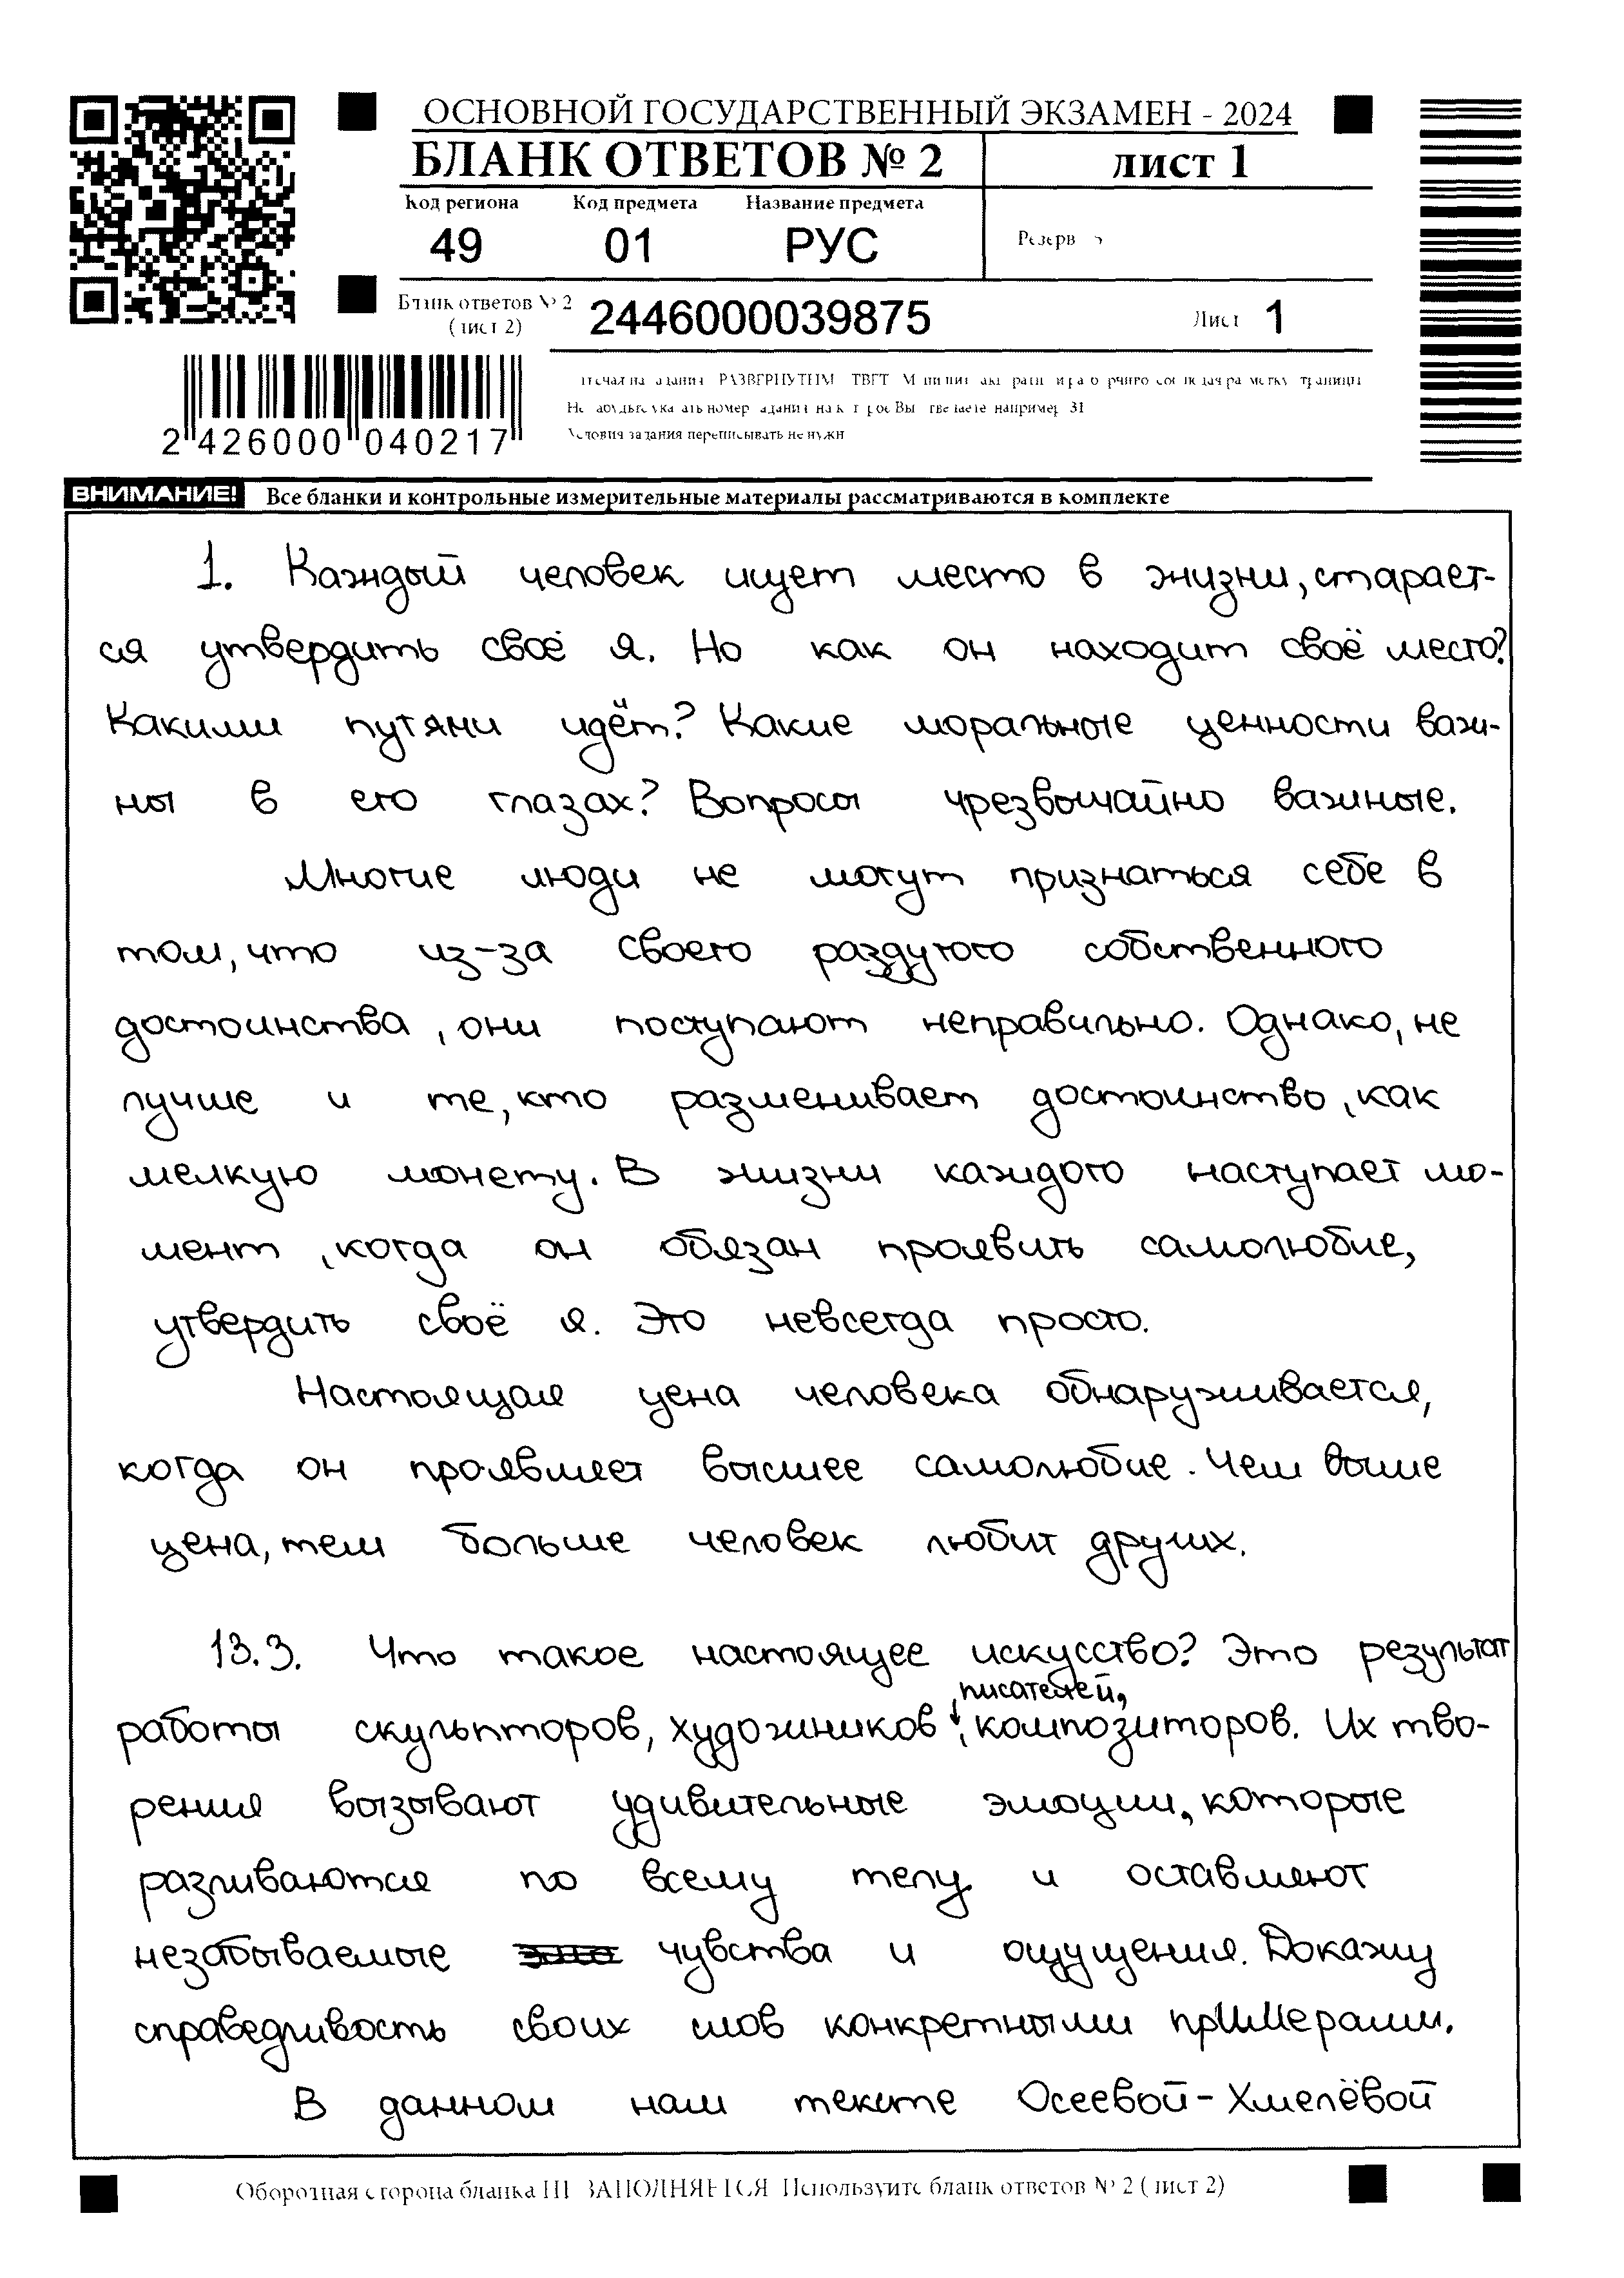 ОСНОВНОЙ ГОСУДАРСТВЕННЫЙ ЭКЗАМЕН - 2024
БЛАНК ОТВЕТОВ № 2
лист 1
Код региона Код предмета Название предмета
49 01 РУС
Резерв
Бланк ответов № 2
(лист 2)
2446000039875
Лист 1
2 426000 040217
Условия задания переписывать не нужн
ВНИМАНИЕ! Все бланки и контрольные измерительные материалы рассматриваются в комплекте
1. Каждый человек ищет место в жизни, старает-
ся утвердить своё я. Но как он находит своё место?
Какими путями идёт? Какие моральные ценности важ-
ны в его глазах? Вопросы чрезвычайно важные.
Многие люди не могут признаться себе в
том, что из-за своего раздутого собственного
достоинства, они поступают неправильно. Однако, не
лучше и те, кто разменивает достоинство, как
мелкую монету. В жизни каждого наступает мо-
мент, когда он обязан проявить самолюбие,
утвердить своё я. Это невсегда просто.
Настоящая цена человека обнаруживается,
когда он проявляет высшее самолюбие. Чем выше
цена, тем больше человек любит других.
13.3. Что такое настоящее искусство? Это результат
писателей,
работы скульпторов, художников, композиторов. Их тво-
рения вызывают удивительные эмоции, которые
разливаются по всему телу и оставляют
незабываемые чувства и ощущения. Докажу
справедливость своих слов конкретными примерами.
В данном нам тексте Осеевой-Хмелёвой
Оборотная сторона бланка НЕ ЗАПОЛНЯЕТСЯ Используйте бланк ответов № 2 (лист 2)